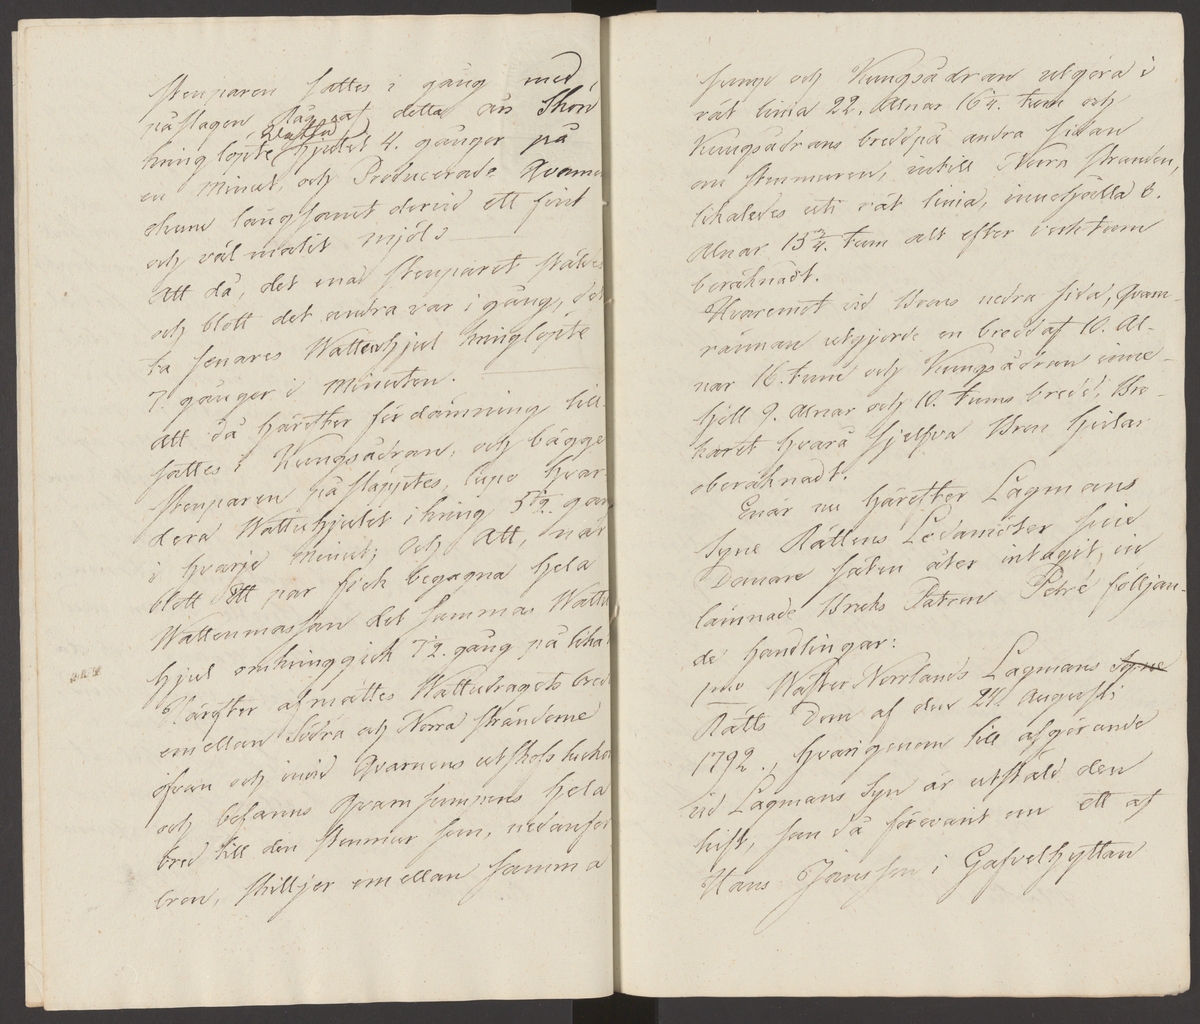 stenparen sattes i gång med
påslagen ... af detta än skön
kringlopte Wattu hjulet 4. gånger på
en Minut, och Producerade Qvarnen
ehuru långsamt dervid ett fint
och väl malit mjöl
Att då, det ena stenparet stäldes
och blott det andra var i gång, det
ta senares Wattenhjul kringlopte
7. gånger i Minuten.
Att då härefter fördämning till
sattes i Kungsådran, och bägge
stenparen påsläpptes, lupo hvar
dera Wattuhjulet ikring 5 1/2. gång
i hvarje Minut; Och Att, när
blott Ett par fick begagna hela
Wattenmassan det sammas Wattu
hjul omkringgick 7 1/2. gång på lika
Härefter afmättes Wattudragets bredd
emellan Södra och Norra stränderne
ofvan och invid Qvarnens utskofs luckor
och befanns Qvarnsumpens hela
bred till den stenmur som, nedanför
bron, skilljer emellan samma
sump och Kungsådran utgöra i
rät linia 22. Alnar 16 1/4. tum och
Kungsådrans bredd på andra sidan
om stenmuren, intill Norra stranden,
likaledes uti rät linia, innehålla 6.
Alnar 13 3/4. tum alt efter verktum
beräknadt.
Hvaremot vid Brons nedra sida, Qvarn-
rännan utgjorde en bredd af 10. Al-
nar 16. tum och Kungsådran inne-
höll 9. Alnar och 10. tums bredd, Bro-
karet hvarå sjelfva Bron hvilar
oberäknadt.
Enär nu härefter Lagmans
Syne Rättens Ledamöter sine
Domare säten åter intagit, in
lämnade Bruks Patron Petré följan-
de handlingar:
1mo Wäster Norrlands Lagmans Syne
Rätts Dom af den 21 Augusti
1792., hvarigenom till afgörande
vid Lagmans Syn är utstäld den
tvist, som då förevarit om ett af
Hans Jansson i Gafvelhyttan